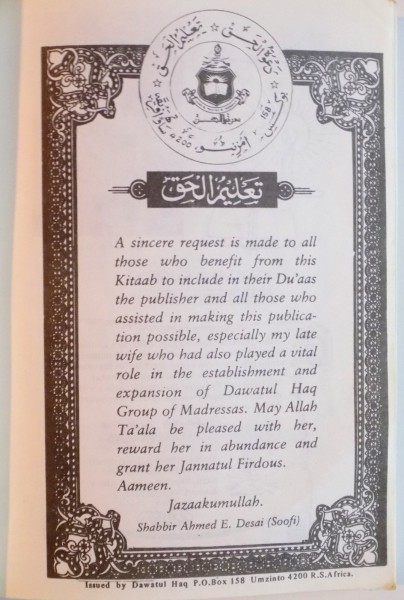 تعليم الحق
دعوة الحق
4200
158
تَعْلِيمُ الْحَقّ
A sincere request is made to all
those who benefit from this
Kitaab to include in their Du'aas
the publisher and all those who
assisted in making this publica-
tion possible, especially my late
wife who had also played a vital
role in the establishment and
expansion of Dawatul Haq
Group of Madressas. May Allah
Ta'ala be pleased with her,
reward her in abundance and
grant her Jannatul Firdous.
Aameen.
Jazaakumullah.
Shabbir Ahmed E. Desai (Soofi)
Issued by Dawatul Haq P.O.Box 158 Umzinto 4200 R.S.Africa.